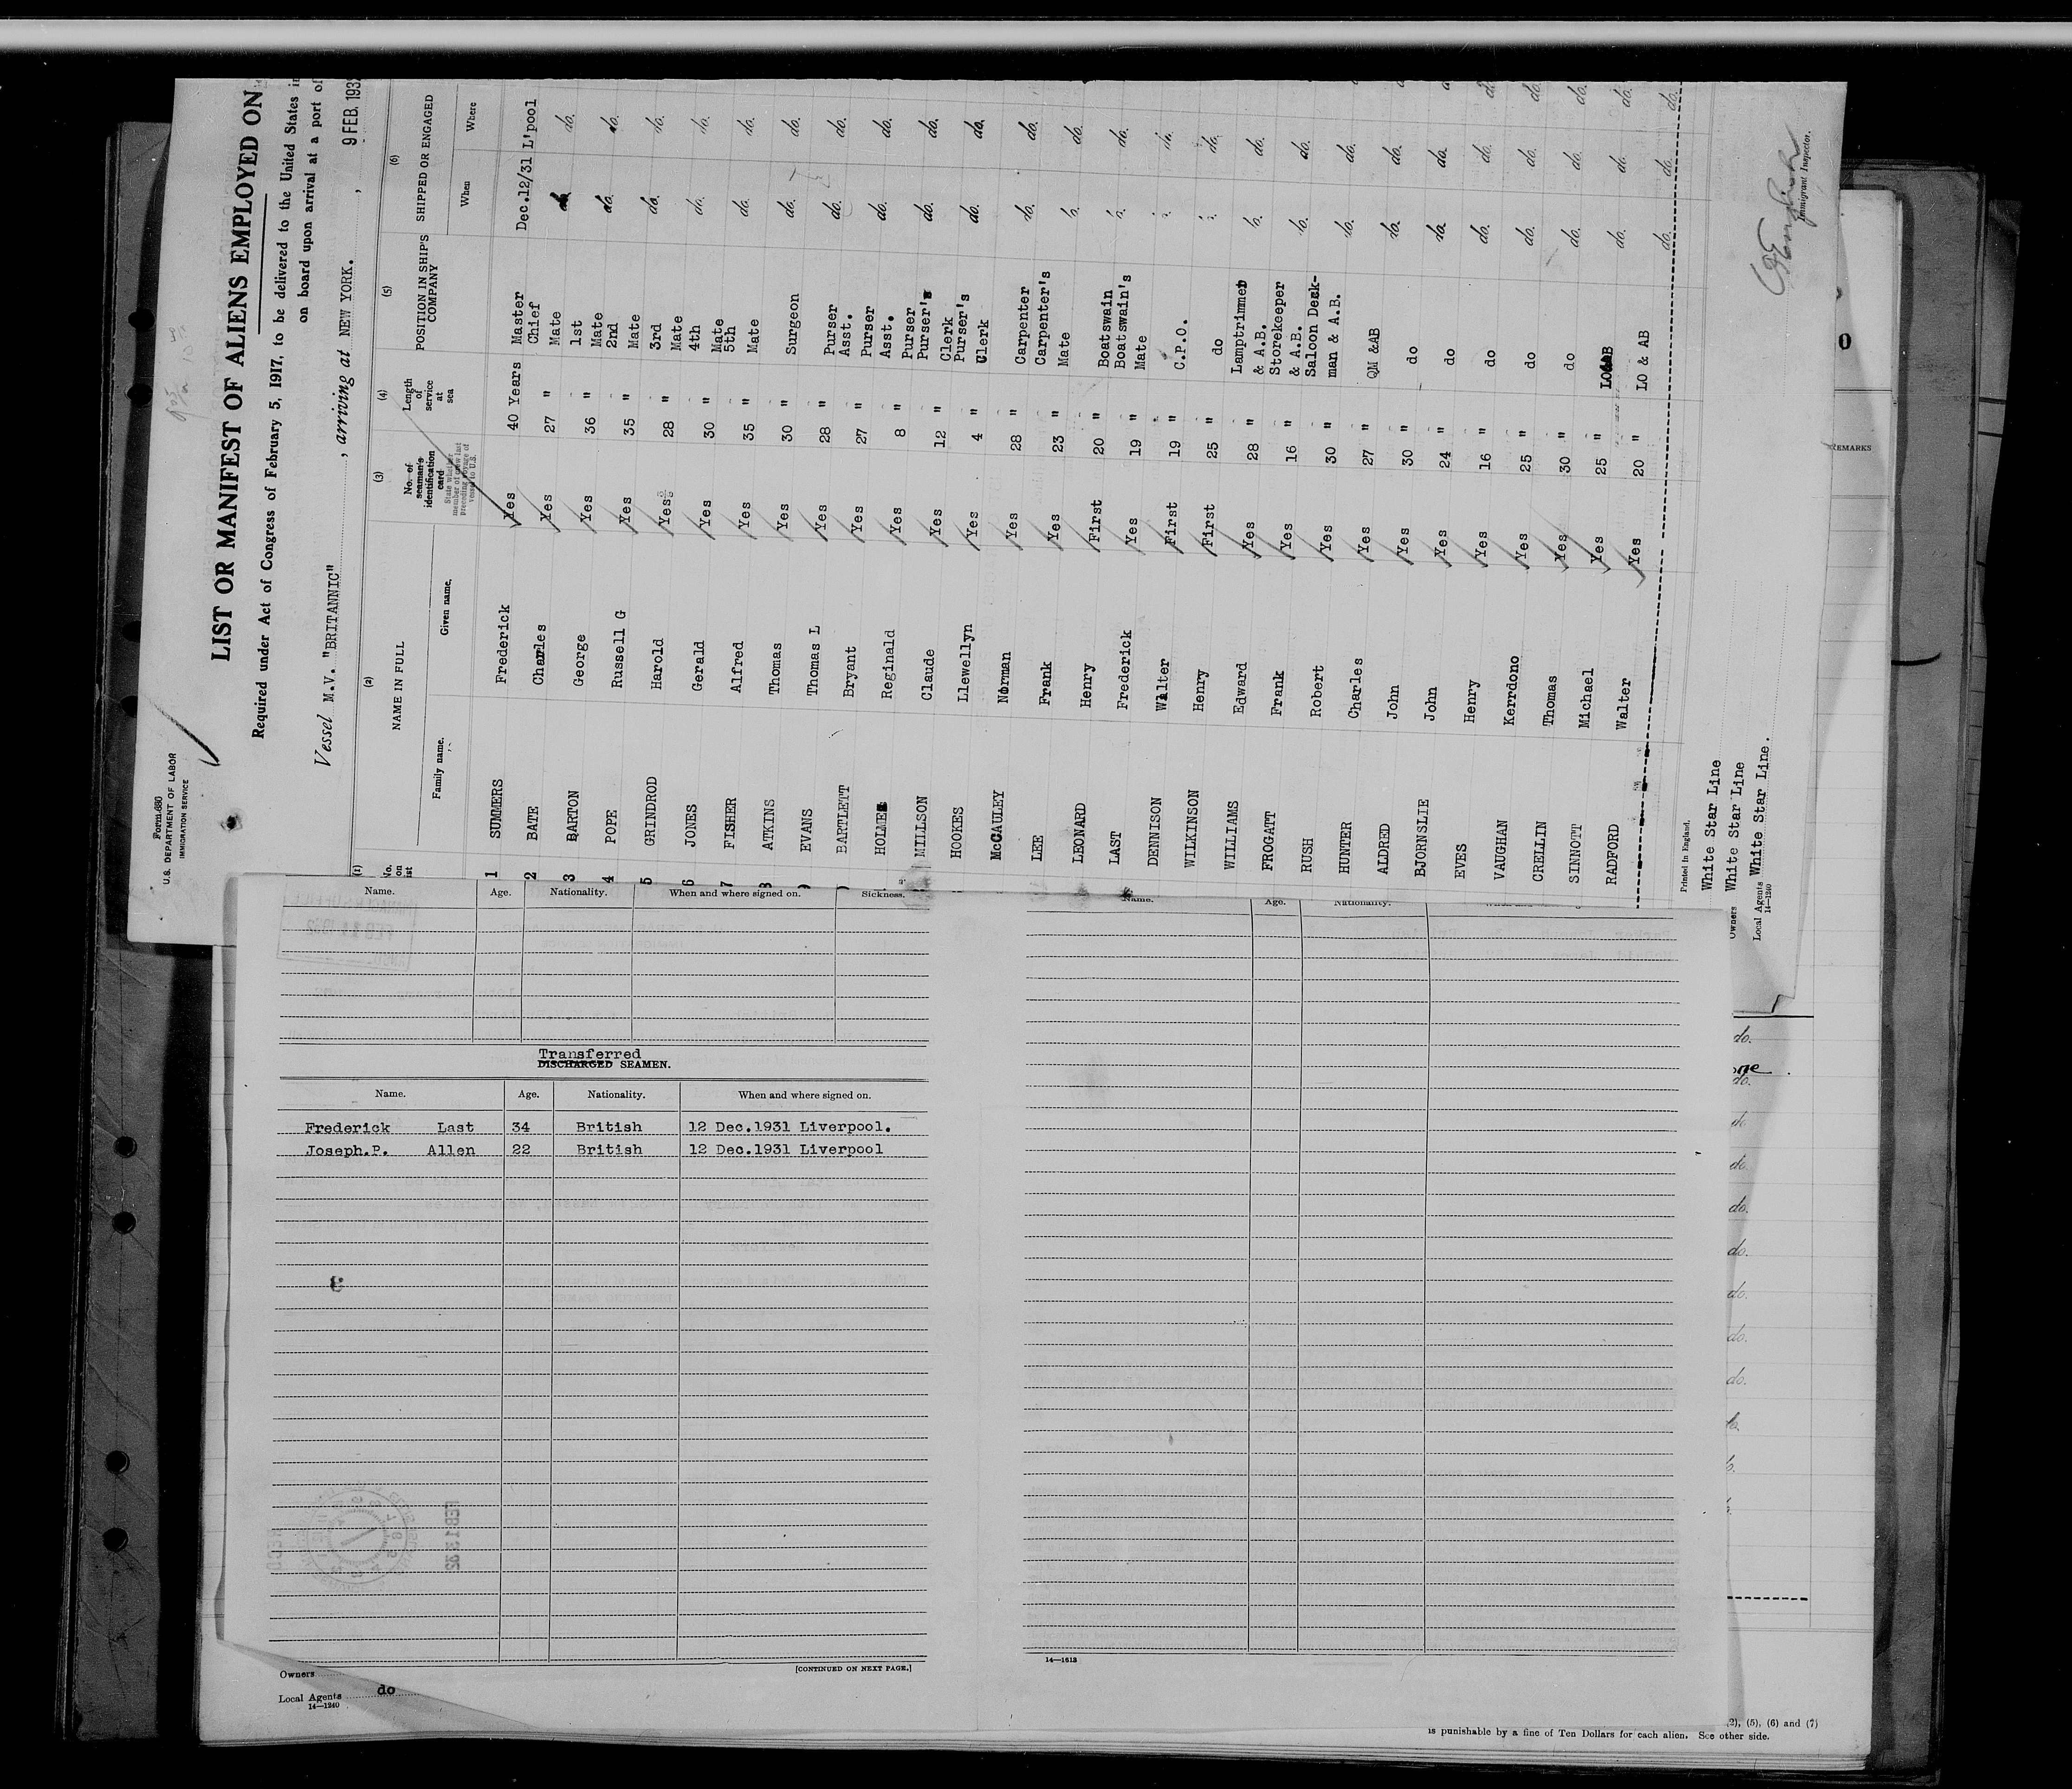 Form 680
U.S. DEPARTMENT OF LABOR
IMMIGRATION SERVICE
LIST OR MANIFEST OF ALIENS EMPLOYED ON
Required under Act of Congress of February 5, 1917, to be delivered to the United States
on board upon arrival at a port of
Vessel M.V. "BRITANNIC" , arriving at NEW YORK. , 9 FEB. 193
(1) (2) (3) (4) (5) (6)
No. on NAME IN FULL No. of seaman's identification card Length of service at sea POSITION IN SHIP'S COMPANY SHIPPED OR ENGAGED
Family name. Given name. When Where
1 SUMMERS Frederick Yes 40 Years Master Dec.12/31 L'pool
2 BATE Charles Yes 27 " Chief Mate do. do.
3 BARTON George Yes 36 " 1st Mate do. do.
4 POPE Russell G Yes 35 " 2nd Mate do. do.
5 GRINDROD Harold Yes 28 " 3rd Mate do. do.
6 JONES Gerald Yes 30 " 4th Mate do. do.
7 FISHER Alfred Yes 35 " 5th Mate do. do.
8 ATKINS Thomas Yes 30 " Surgeon do. do.
EVANS Thomas L Yes 28 " Purser do. do.
BARTLETT Bryant Yes 27 " Asst. Purser do. do.
HOLMES Reginald Yes 8 " Asst. Purser do. do.
MILLSON Claude Yes 12 " Purser's Clerk do. do.
HOOKES Llewellyn Yes 4 " Purser's Clerk do. do.
McCAULEY Norman Yes 28 " Carpenter do. do.
LEE Frank Yes 23 " Carpenter's Mate do.
LEONARD Henry First 20 " Boatswain do.
LAST Frederick Yes 19 " Boatswain's Mate
DENNISON Walter First 19 " C.P.O. do.
WILKINSON Henry First 25 " do do.
WILLIAMS Edward Yes 28 " Lamptrimmer & A.B. do.
FROGATT Frank Yes 16 " Storekeeper & A.B. do.
RUSH Robert Yes 30 " Saloon Deckman & A.B. do.
HUNTER Charles Yes 27 " QM &AB do. do.
ALDRED John Yes 30 " do do. do.
BJORNSLIE John Yes 24 " do do. do.
EVES Henry Yes 16 " do do. do.
VAUGHAN Kerrdono Yes 25 " do do. do.
CRELLIN Thomas Yes 30 " do do. do.
SINNOTT Michael Yes 25 " do. do.
RADFORD Walter Yes 20 " LO & AB do. do.
Printed in England.
White Star Line
Owners White Star Line
Local Agents White Star Line.
14—1240
Immigrant Inspector.
REMARKS
Name. Age. Nationality. When and where signed on. Sickness.
Name. Age. Nationality.
Transferred
DISCHARGED SEAMEN.
Name. Age. Nationality. When and where signed on.
Frederick Last 34 British 12 Dec.1931 Liverpool.
Joseph.P. Allen 22 British 12 Dec.1931 Liverpool
do.
do.
do.
do.
do.
do.
do.
do.
do.
[CONTINUED ON NEXT PAGE.]
14—1613
Owners
Local Agents do
14—1240
(2), (5), (6) and (7)
is punishable by a fine of Ten Dollars for each alien. See other side.